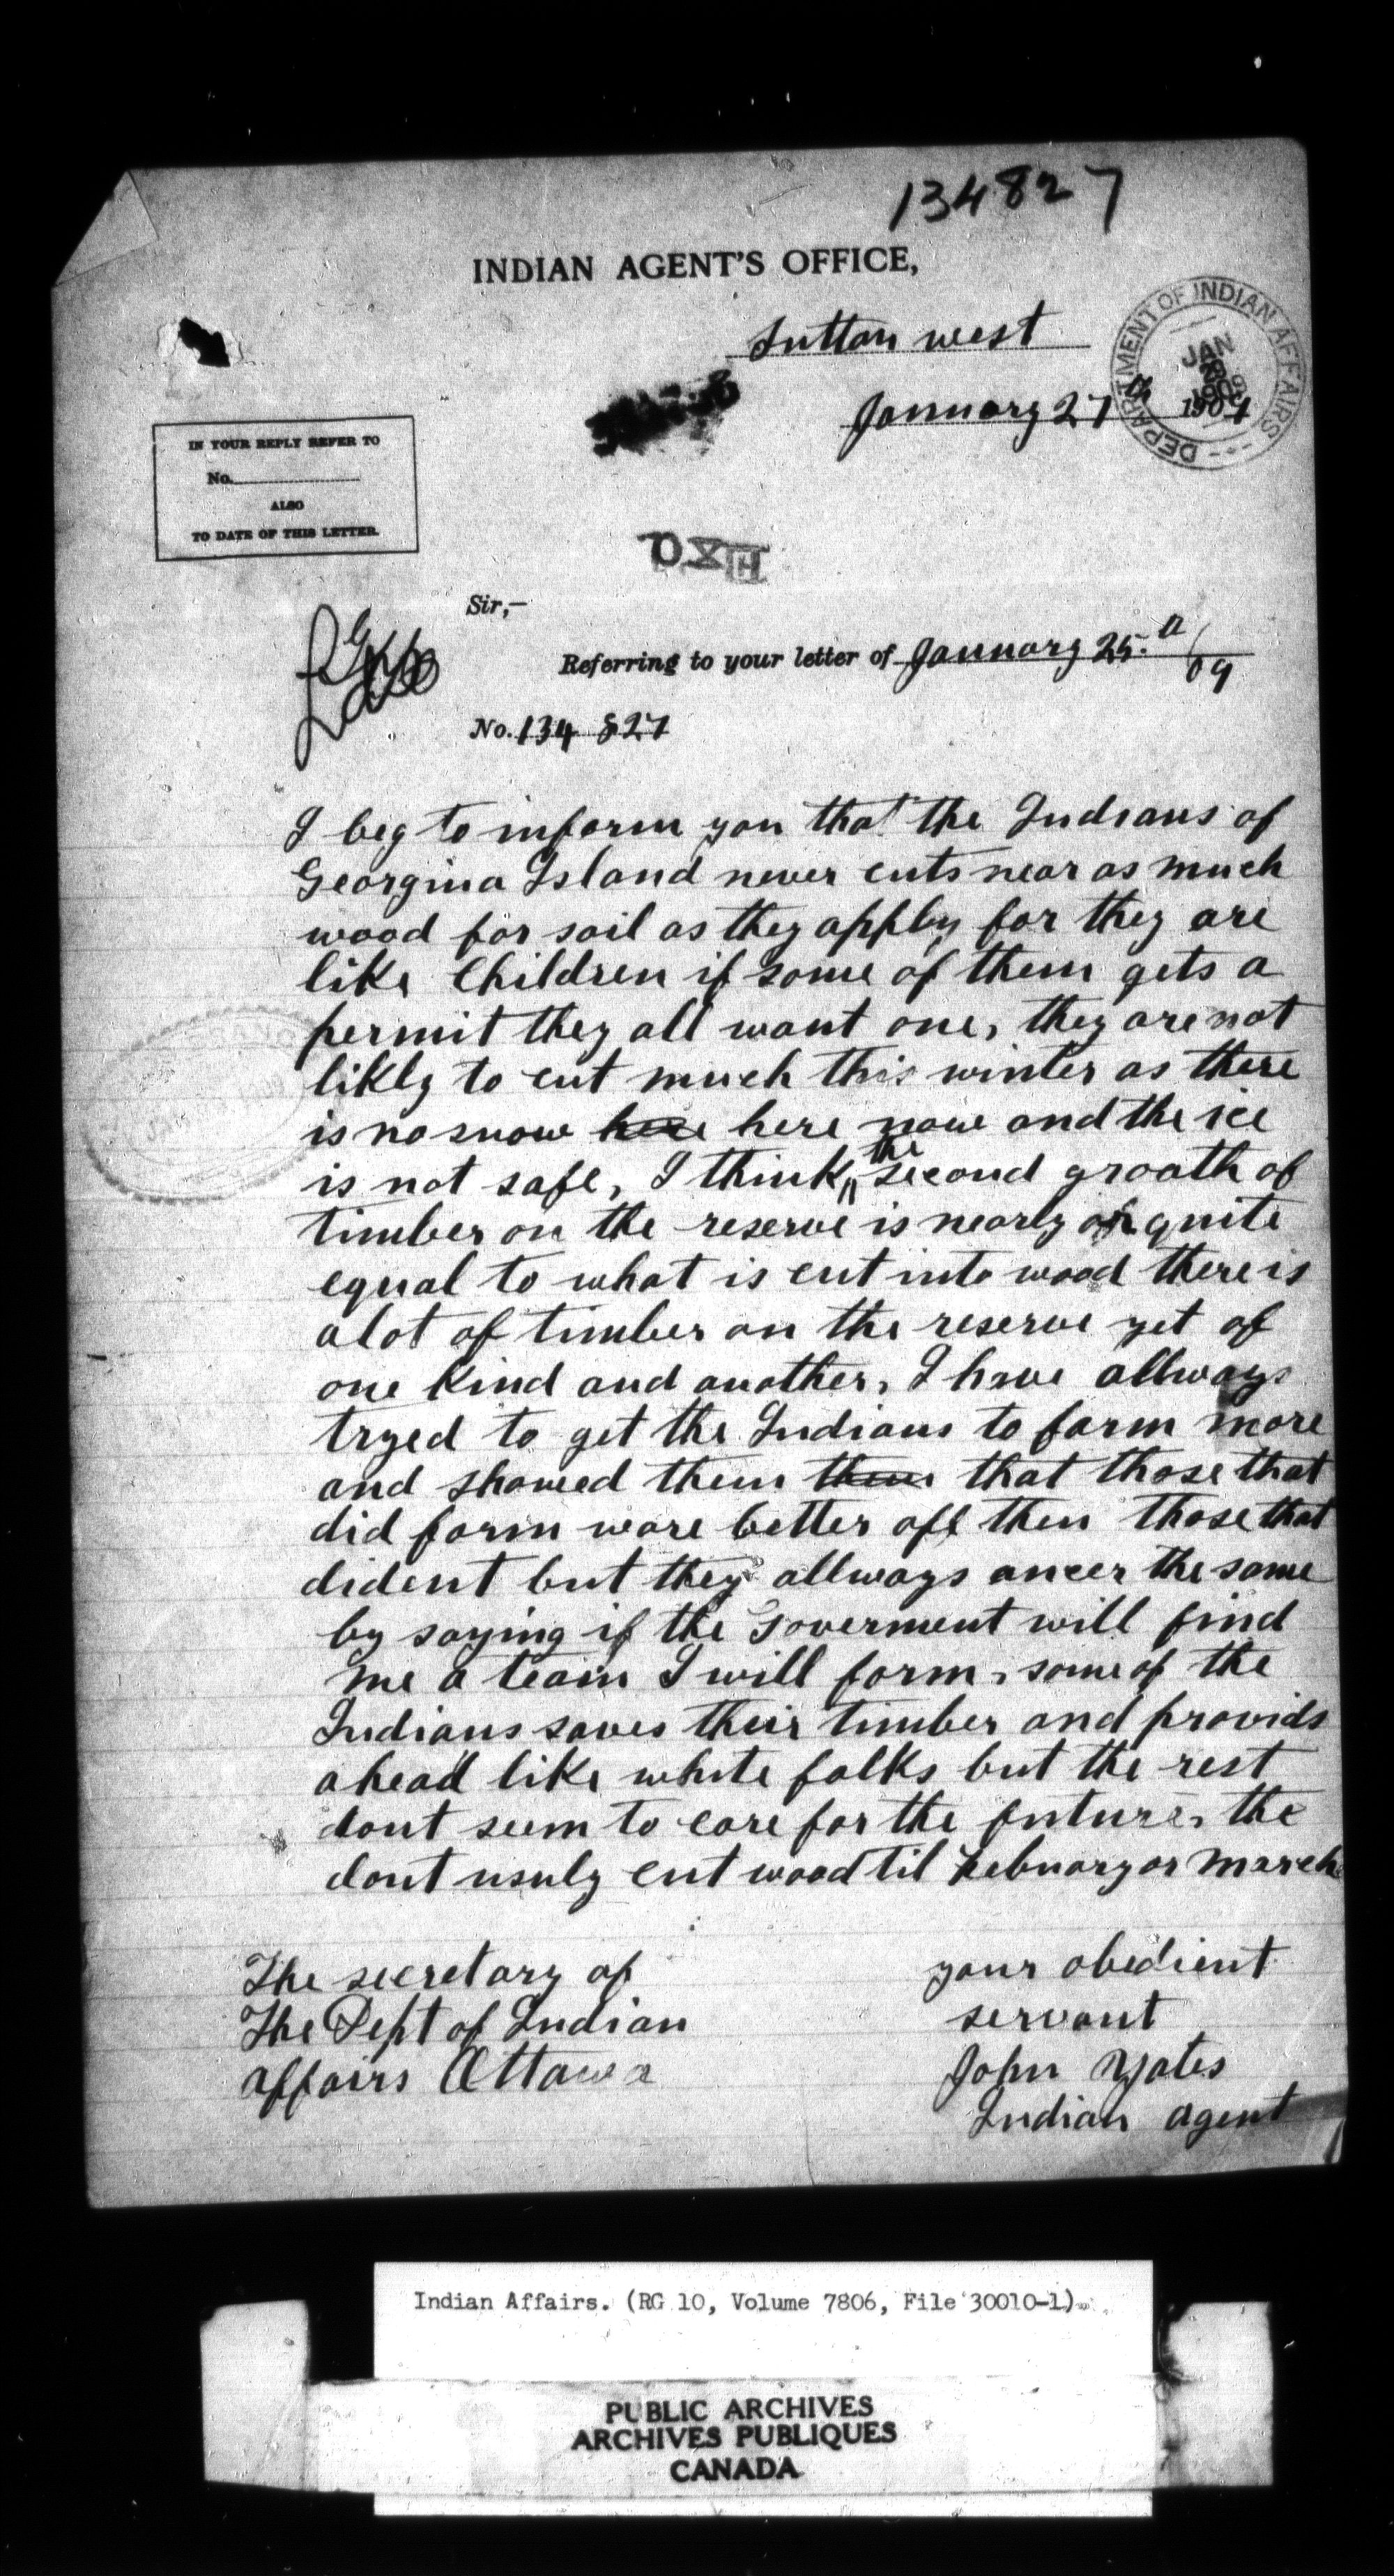 134827
INDIAN AGENT'S OFFICE,
Sutton west
January 27th 1909
DEPARTMENT OF INDIAN AFFAIRS
JAN 29 1909
IN YOUR REPLY REFER TO
No.
ALSO
TO DATE OF THIS LETTER.
Sir,—
Referring to your letter of January 25th/09
No. 134 827
I beg to inform you that the Indians of
Georgina Island never cuts near as much
wood for sail as they apply for they are
like Children if some of them gets a
permit they all want one, they are not
likly to cut much this winter as there
is no snow here here now and the ice
is not safe, I think the second groath of
timber on the reserve is nearly or quite
equal to what is cut into wood there is
a lot of timber on the reserve yet of
one kind and another, I have allways
tryed to get the Indians to farm more
and showed them them that those that
did farm ware better off then those that
dident but they allways ancer the same
by saying if the Goverment will find
me a team I will farm, some of the
Indians saves their timber and provids
ahead like white folks but the rest
dont seem to care for the future, the
dont usuly cut wood til Febuary or March
The secretary of
The Dept of Indian
affairs Ottawa
your obedient
servant
John Yates
Indian agent
Indian Affairs. (RG 10, Volume 7806, File 30010-1)
PUBLIC ARCHIVES
ARCHIVES PUBLIQUES
CANADA